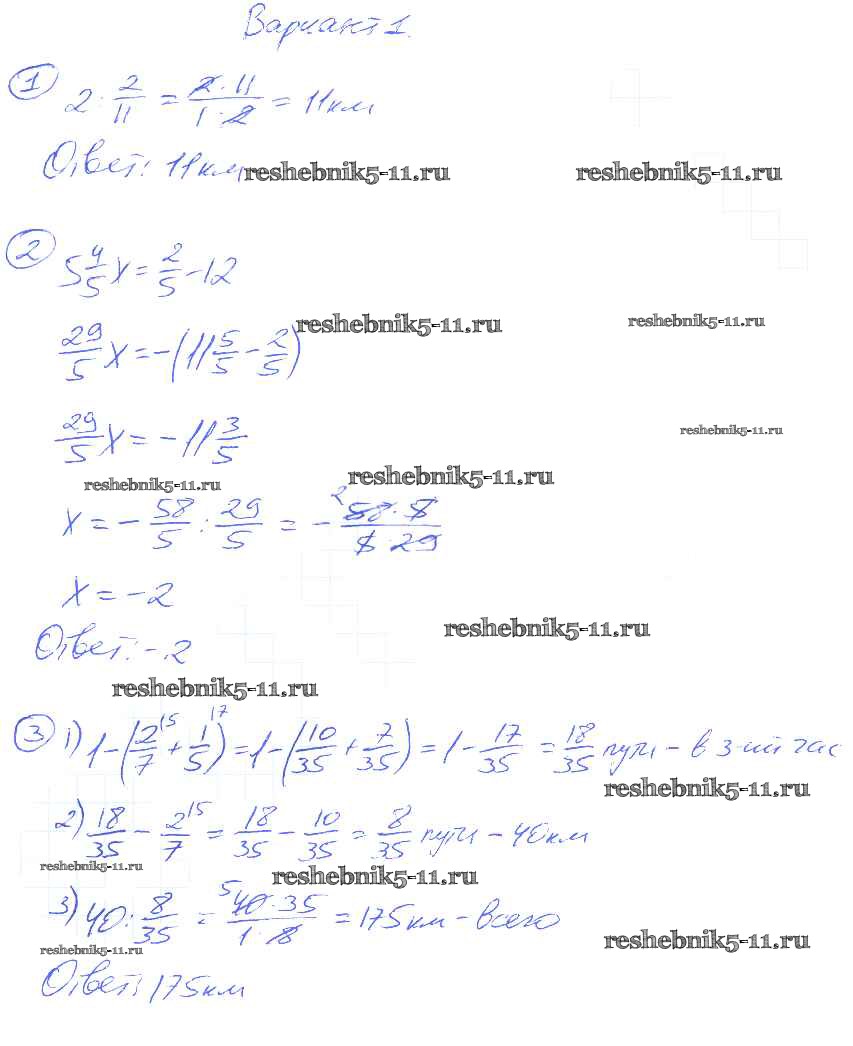 Вариант 1.
① 2 : 2/11 = 2·11/1·2 = 11км
Ответ: 11км
reshebnik5-11.ru reshebnik5-11.ru
② 5 4/5 x = 2/5 - 12
reshebnik5-11.ru reshebnik5-11.ru
29/5 x = -(11 5/5 - 2/5)
29/5 x = -11 3/5
reshebnik5-11.ru
reshebnik5-11.ru reshebnik5-11.ru
x = - 58/5 : 29/5 = - 2 58·5/5·29
x = -2
reshebnik5-11.ru
Ответ: -2
reshebnik5-11.ru
③ 1) 1-(2/7 + 1/5) = 1-(10/35 + 7/35) = 1 - 17/35 = 18/35 пути - в 3-ий час
reshebnik5-11.ru
2) 18/35 - 2/7 = 18/35 - 10/35 = 8/35 пути - 40км
reshebnik5-11.ru reshebnik5-11.ru
3) 40 : 8/35 = 5 40·35/1·8 = 175км - всего
reshebnik5-11.ru reshebnik5-11.ru
Ответ: 175км